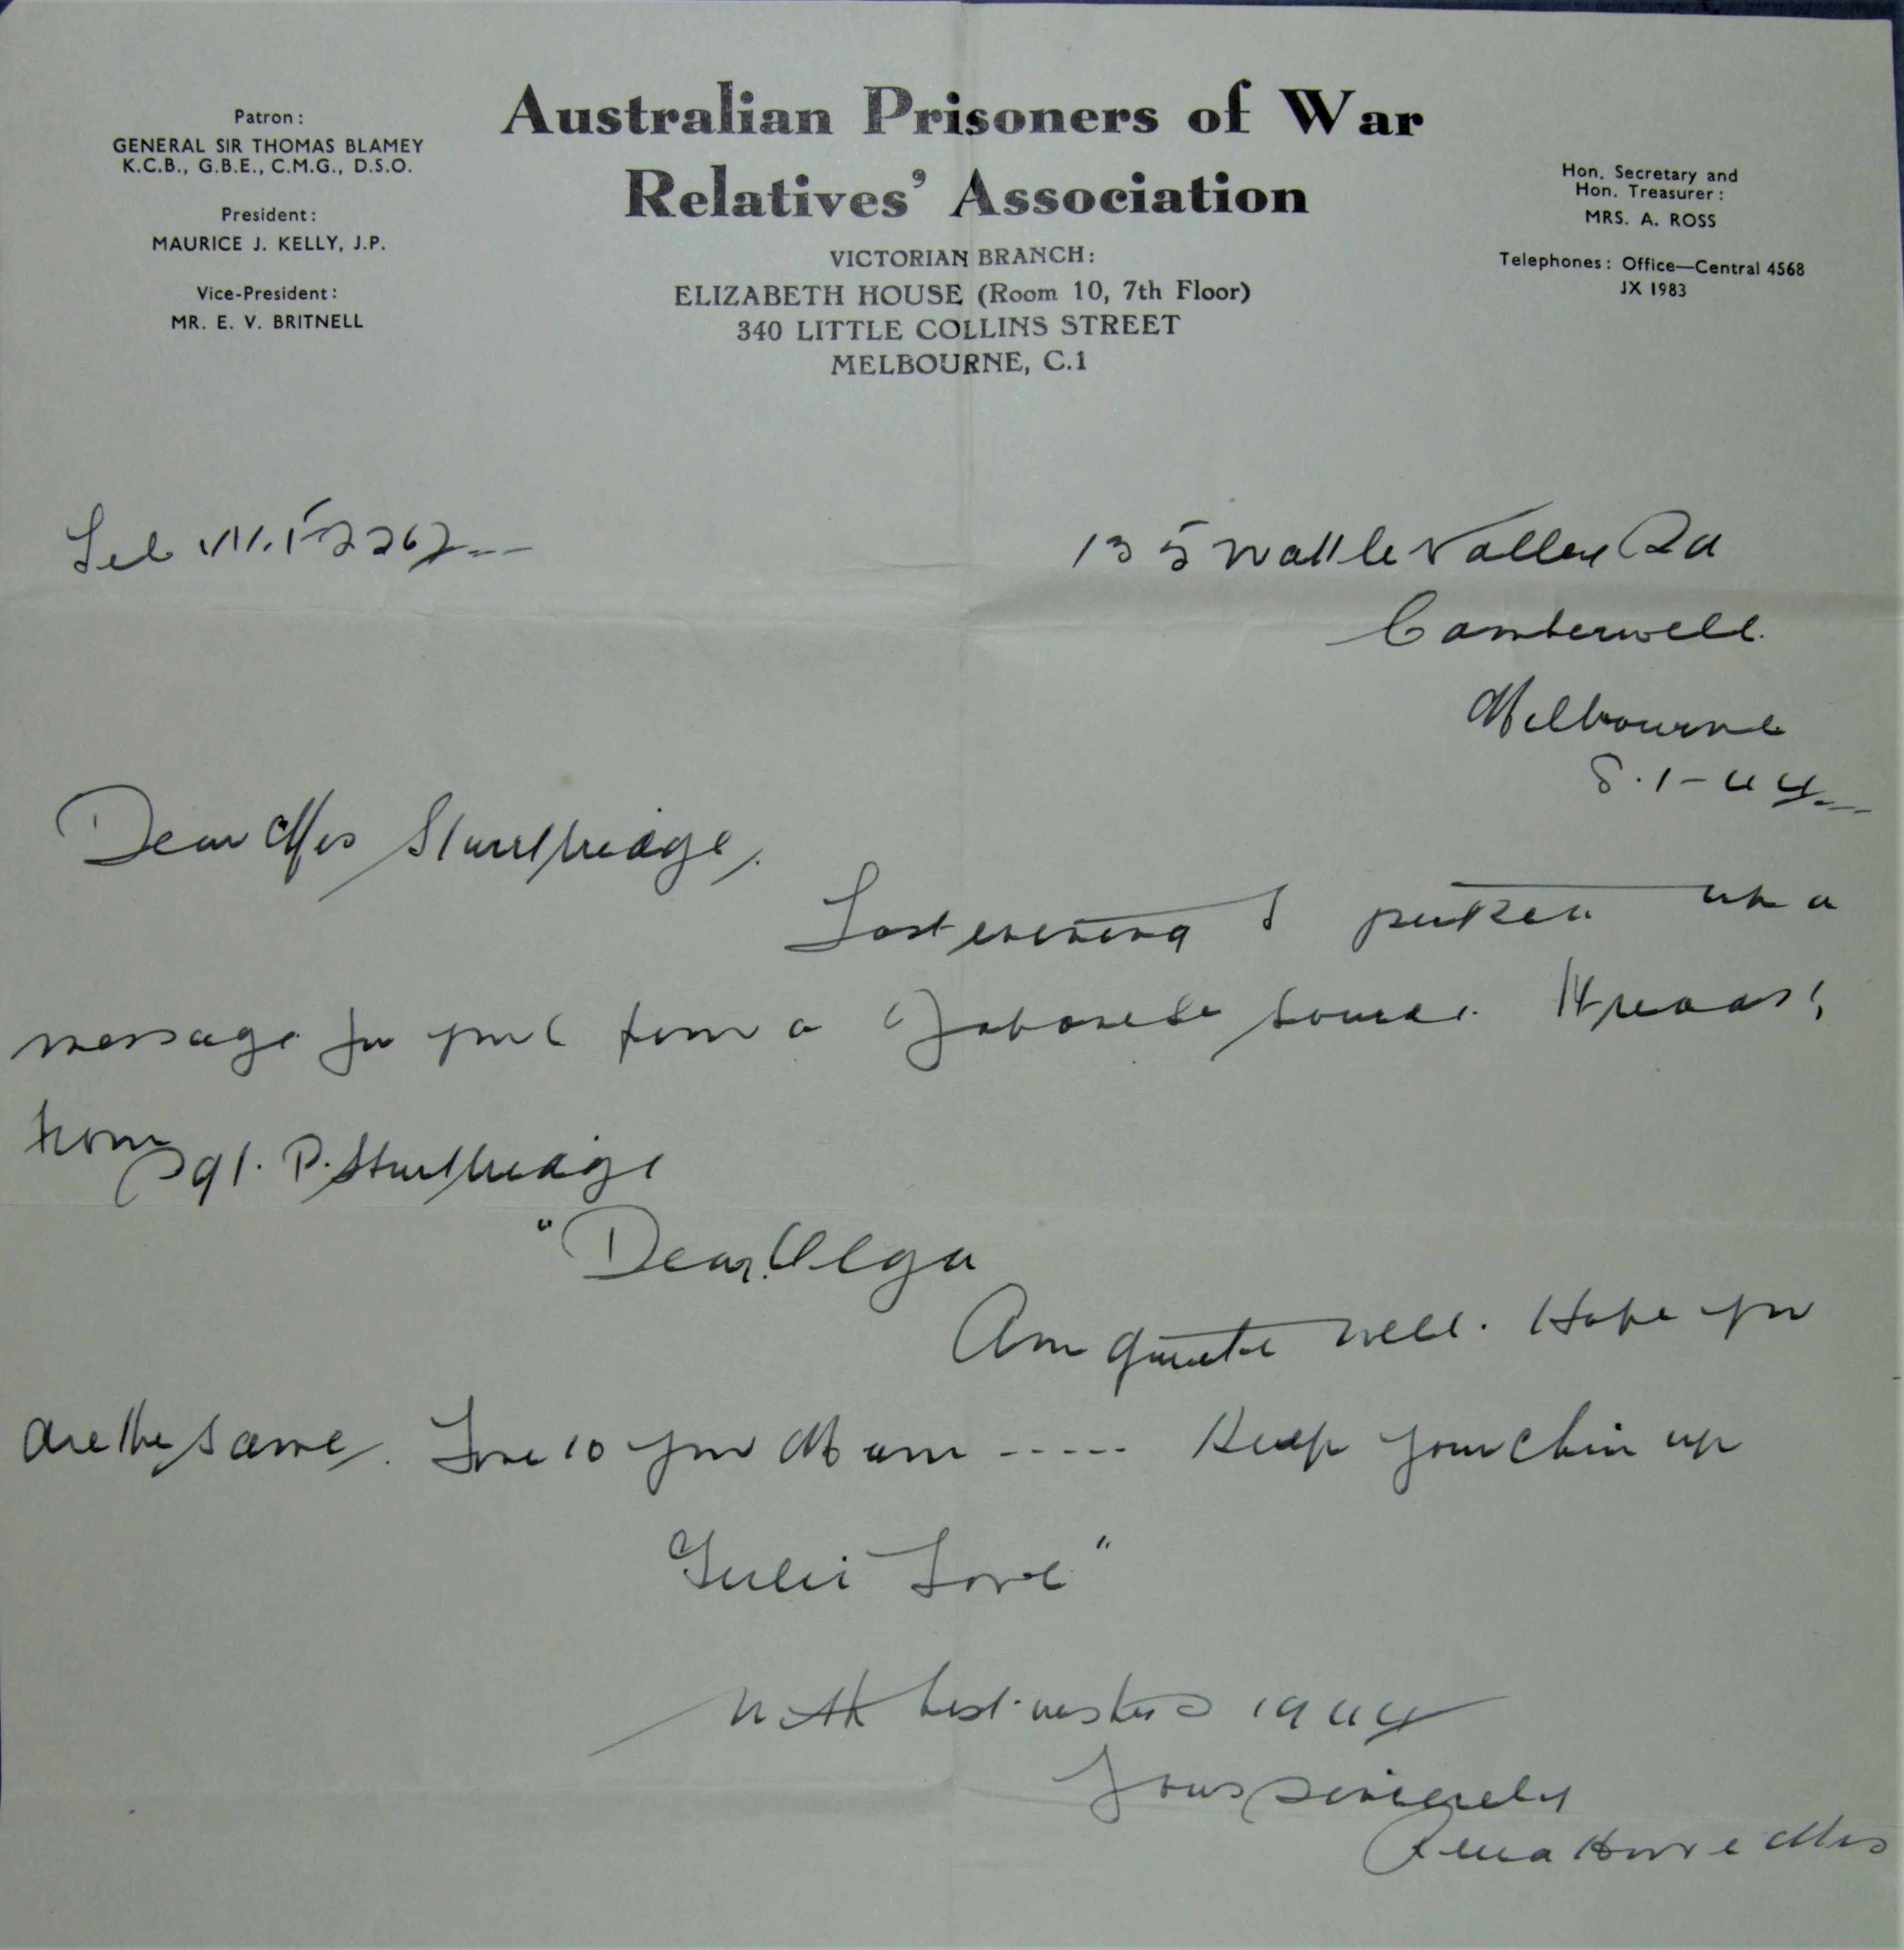 Patron:
GENERAL SIR THOMAS BLAMEY
K.C.B., G.B.E., C.M.G., D.S.O.
President:
MAURICE J. KELLY, J.P.
Vice-President:
MR. E. V. BRITNELL
Australian Prisoners of War
Relatives' Association
VICTORIAN BRANCH:
ELIZABETH HOUSE (Room 10, 7th Floor)
340 LITTLE COLLINS STREET
MELBOURNE, C.1
Hon. Secretary and
Hon. Treasurer:
MRS. A. ROSS
Telephones: Office—Central 4568
JX 1983
135 Wattle Valley Rd
Camberwell.
Melbourne
8.1-44
Dear Mrs Sturtridge,
Last evening I picked up a
message for you from a Japanese source. It reads:
from
Sgt. P. Sturtridge
"Dear Olga
Am quite well. Hope you
are the same. Love to you Mum ----- Keep your chin up
Love"
With best wishes 1944
Yours sincerely
Mrs